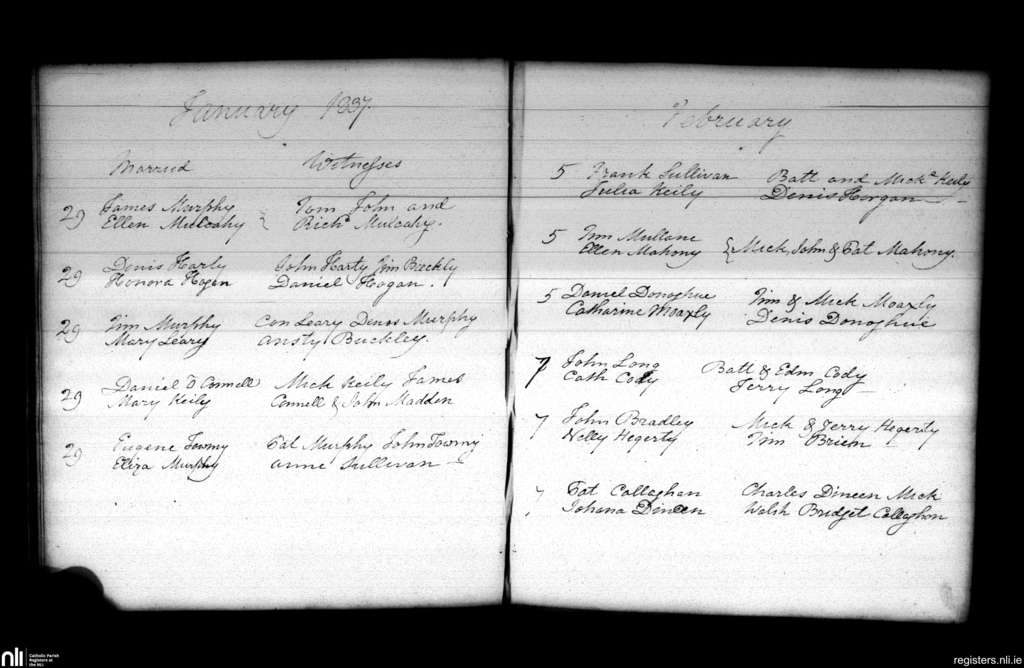 January 1837.
Married Witnesses
29 James Murphy Tom John and
Ellen Mulcahy Richd Mulcahy.
29 Denis Harty John Harty Jim Buckly
Honora Hogan Daniel Hogan.
29 Tim Murphy Con Leary Denos Murphy
Mary Leary Ansty Buckley.
29 Daniel O Connell Mick Keily James
Mary Keily Connell & John Madden
29 Eugene Towmy Pat Murphy John Towmy
Eliza Murphy Anne Sullivan
February
5 Frank Sullivan Batt and Mick Keily
Julia Keily Denis Horgan
5 Tim Mullane Mick, John & Pat Mahony.
Ellen Mahony
5 Daniel Donoghue Tim & Mick Moaxly
Catharine Moaxly Denis Donoghue
7 John Long Batt & Edm Cody
Cath Cody Jerry Long
7 John Bradley Mick & Jerry Hegerty
Nelly Hegerty Tim Brien
7 Pat Callaghan Charles Dineen Mick
Johana Dineen Walsh Bridget Callaghan
nli
Catholic Parish
Registers at
the NLI
registers.nli.ie